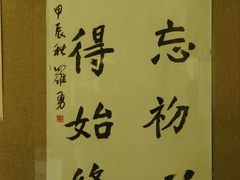 忘初
得始
甲辰秋 羅勇